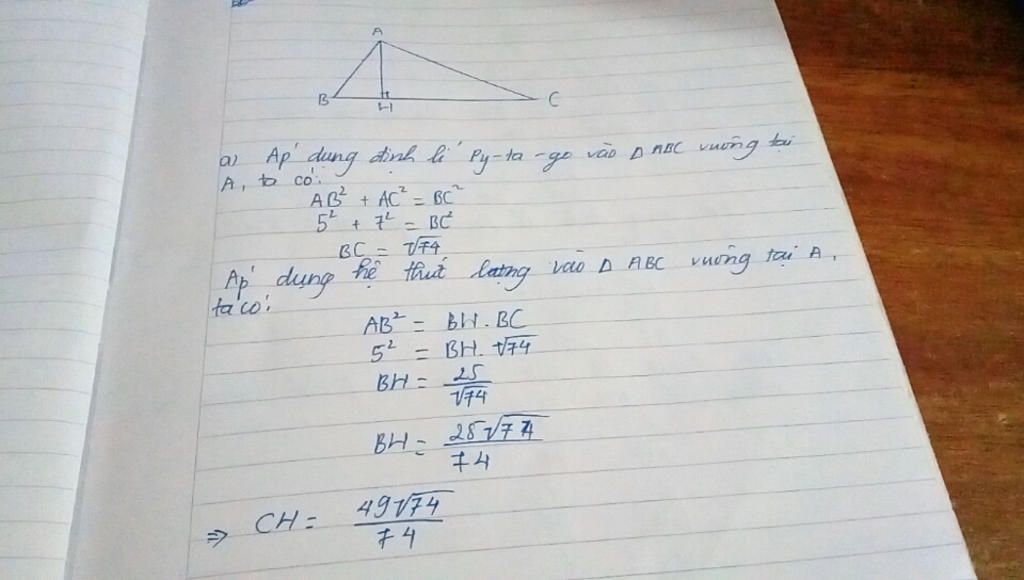 A
B
H
C
a) Áp dụng định lí Py-ta-go vào Δ ABC vuông tại
A, ta có:
AB² + AC² = BC²
5² + 7² = BC²
BC = √74
Áp dụng hệ thức lượng vào Δ ABC vuông tại A,
ta có:
AB² = BH . BC
5² = BH . √74
BH = 25/√74
BH = 25√74/74
⇒ CH = 49√74/74